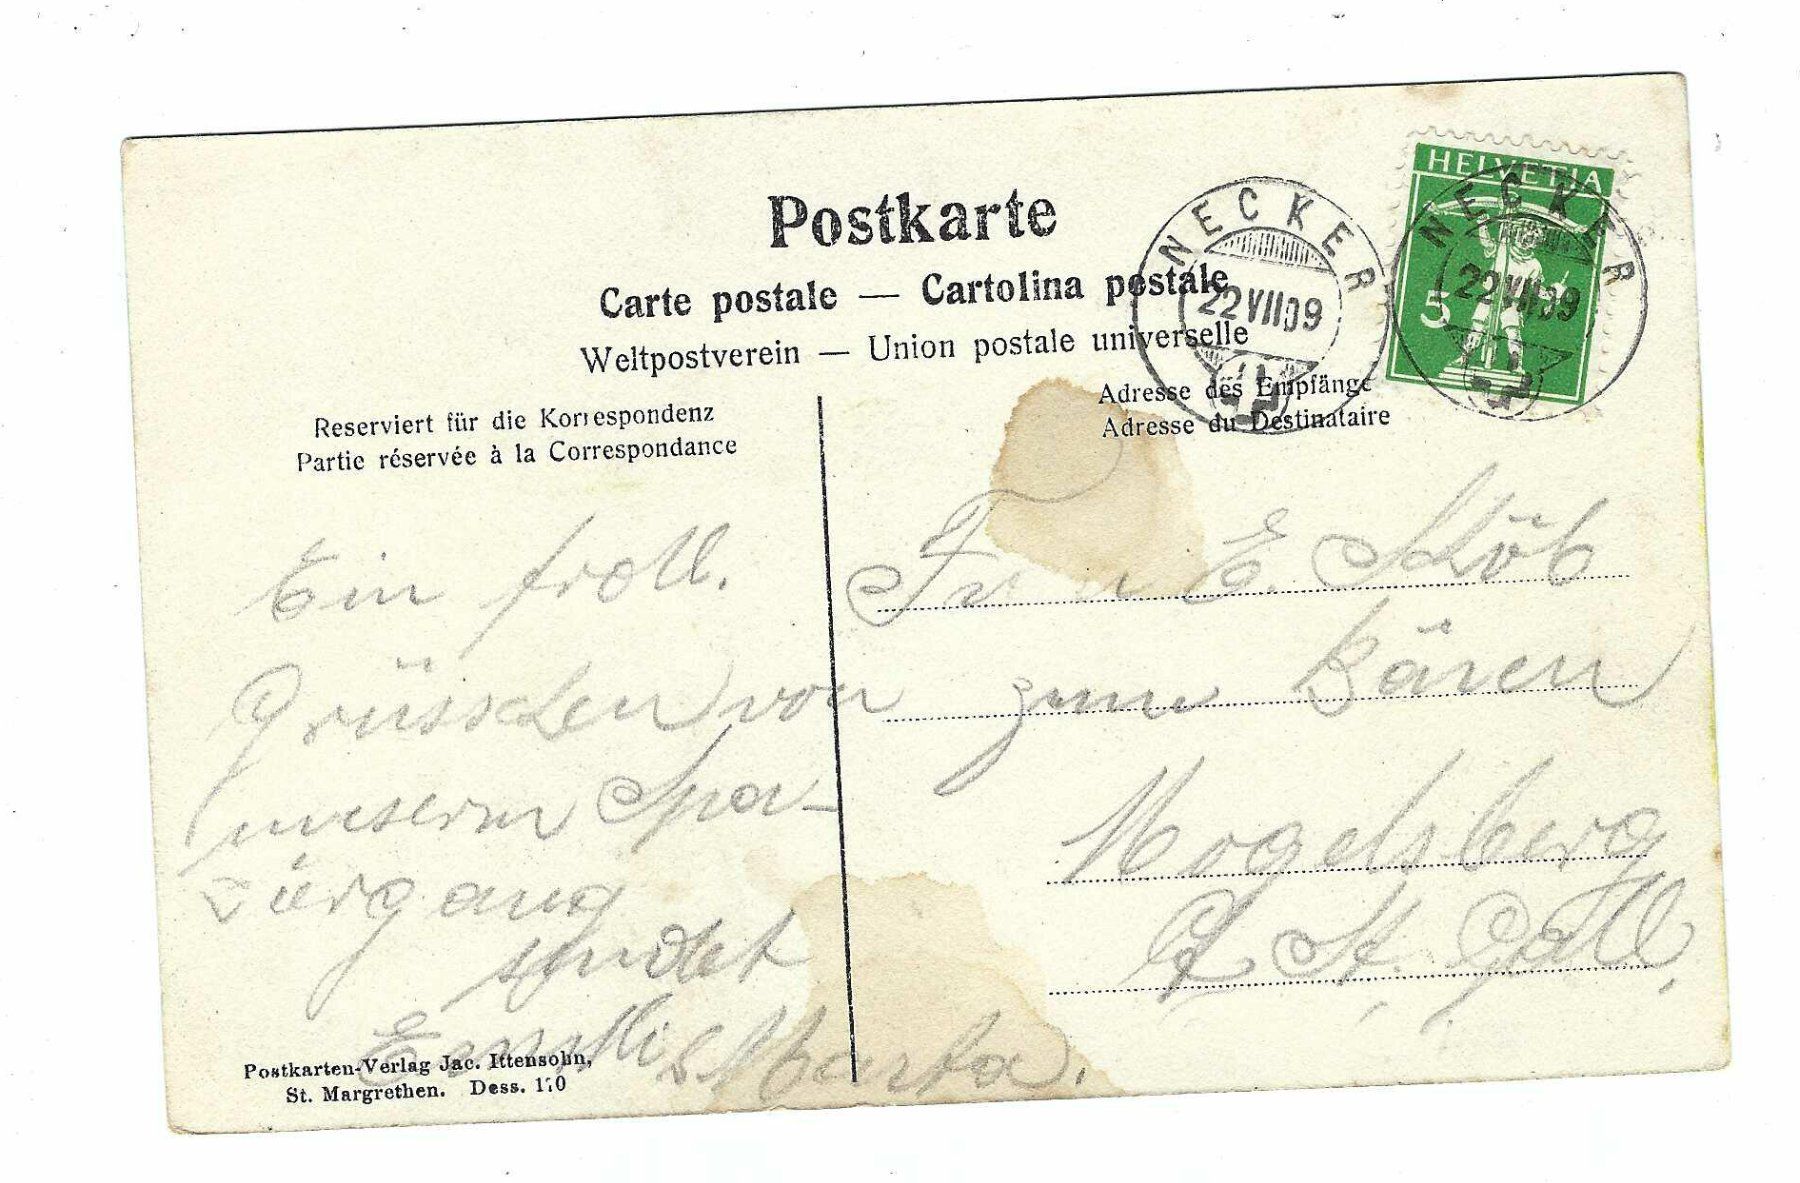 Postkarte
Carte postale — Cartolina postale
Weltpostverein — Union postale universelle
NECKER
22 VII 09
HELVETIA
5
NECKER
22 VII 09
Reserviert für die Korrespondenz
Partie réservée à la Correspondance
Adresse des Empfänge
Adresse du Destinataire
Ein froll.
Grüsschen von
unserm Spa-
ziergang
sendet
& Marta.
Frau E. Stöb
zum Bären
Mogelsberg
Ct. St. Gall.
Postkarten-Verlag Jac. Ittensohn,
St. Margrethen. Dess. 110